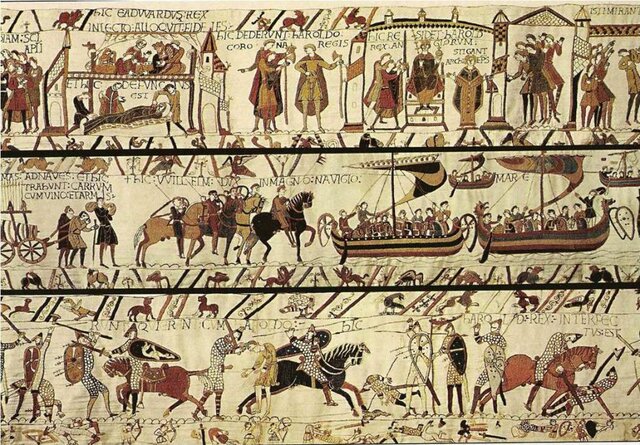 HIC EADVVARDUS:REX
IN LECTO:ALLOQUIT:FIDELES:
ET HIC:DEFUNCTUS
EST
HIC DEDERUNT:HAROLDO:
CORONA REGIS
HIC RESIDET:HAROLD
REX ANGLORUM:
STIGANT
ARCHIEPS
ISTI MIRANT
AD NAVES:ET HIC
TRAHUNT:CARRUM
CUM VINO:ET ARMIS:
HIC:VVILLELM:DUX IN MAGNO:NAVIGIO:
MARE
HAROLDO:HIC
HAROLD:REX:INTERFEC
TUS:EST